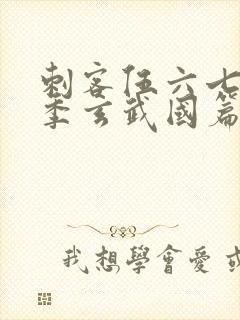 刺客伍六七
季玄武國篇
我想學會愛或